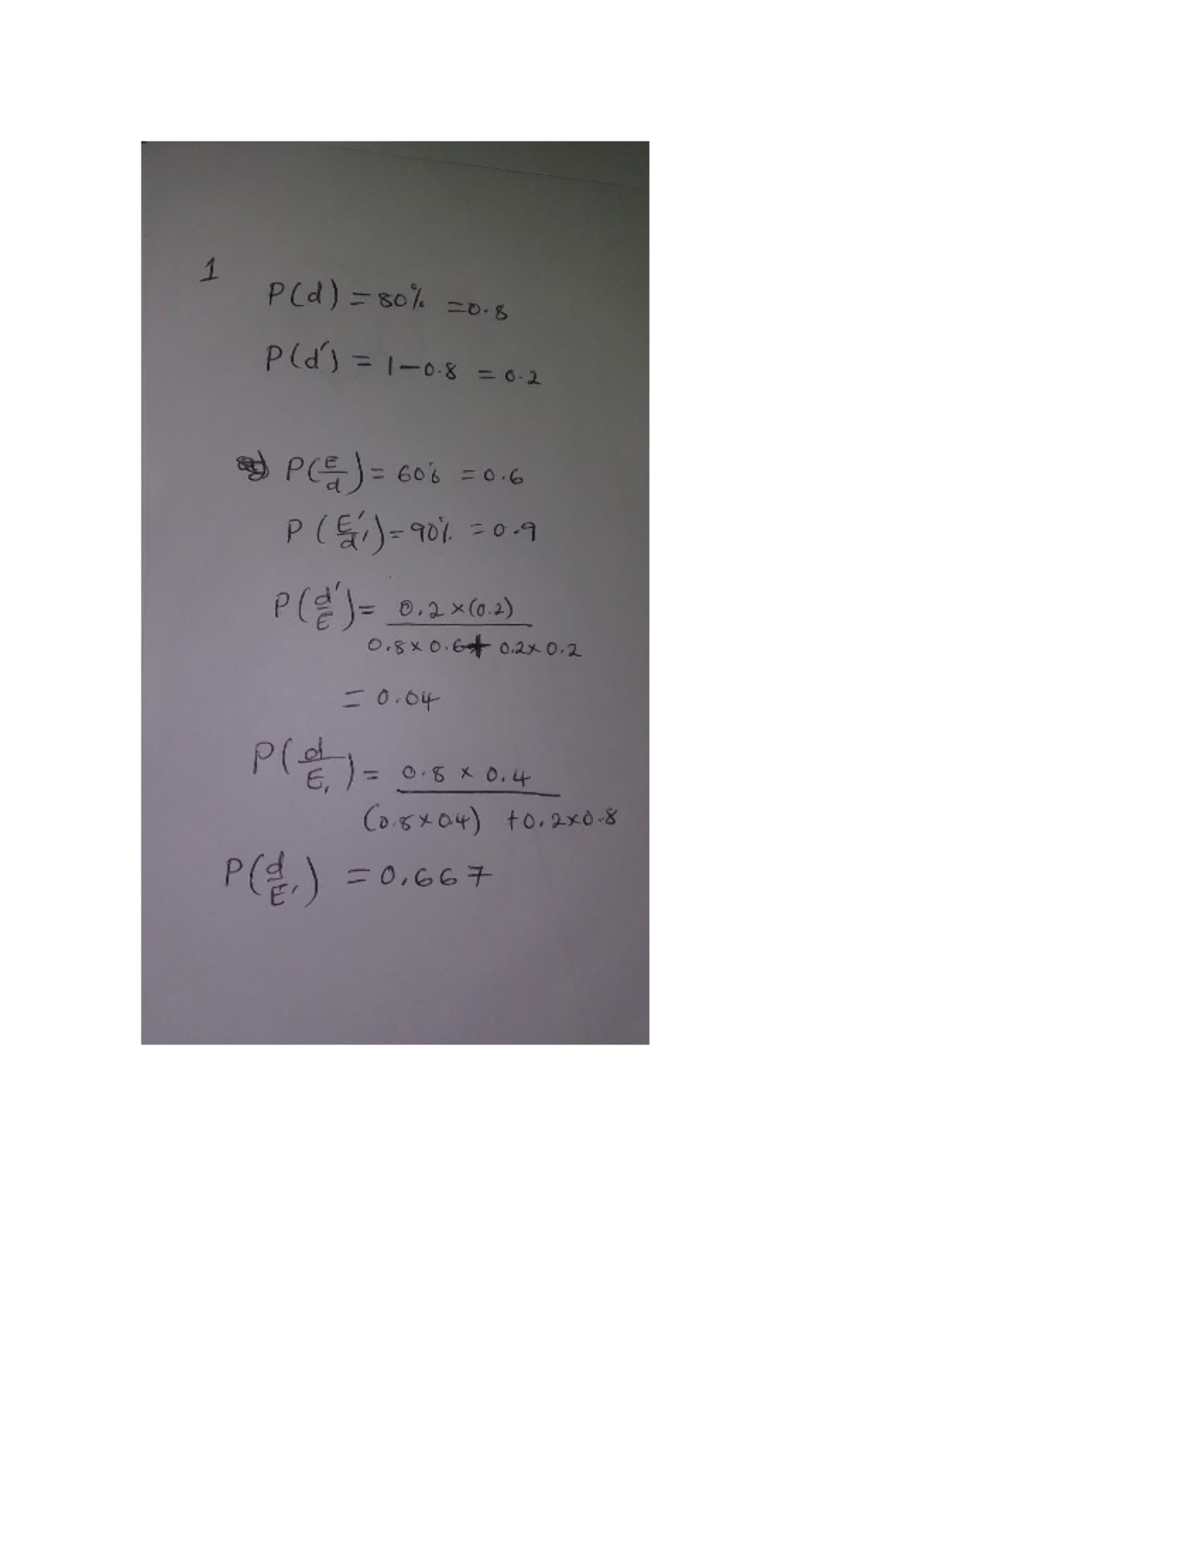 1
P(d) = 80% = 0.8
P(d') = 1 - 0.8 = 0.2
P(E/d) = 60% = 0.6
P(E'/d') = 90% = 0.9
P(d'/E) = 0.2 × (0.2)
0.8 × 0.6 + 0.2 × 0.2
= 0.04
P(d/E') = 0.8 × 0.4
(0.8 × 0.4) + 0.2 × 0.8
P(d/E') = 0.667